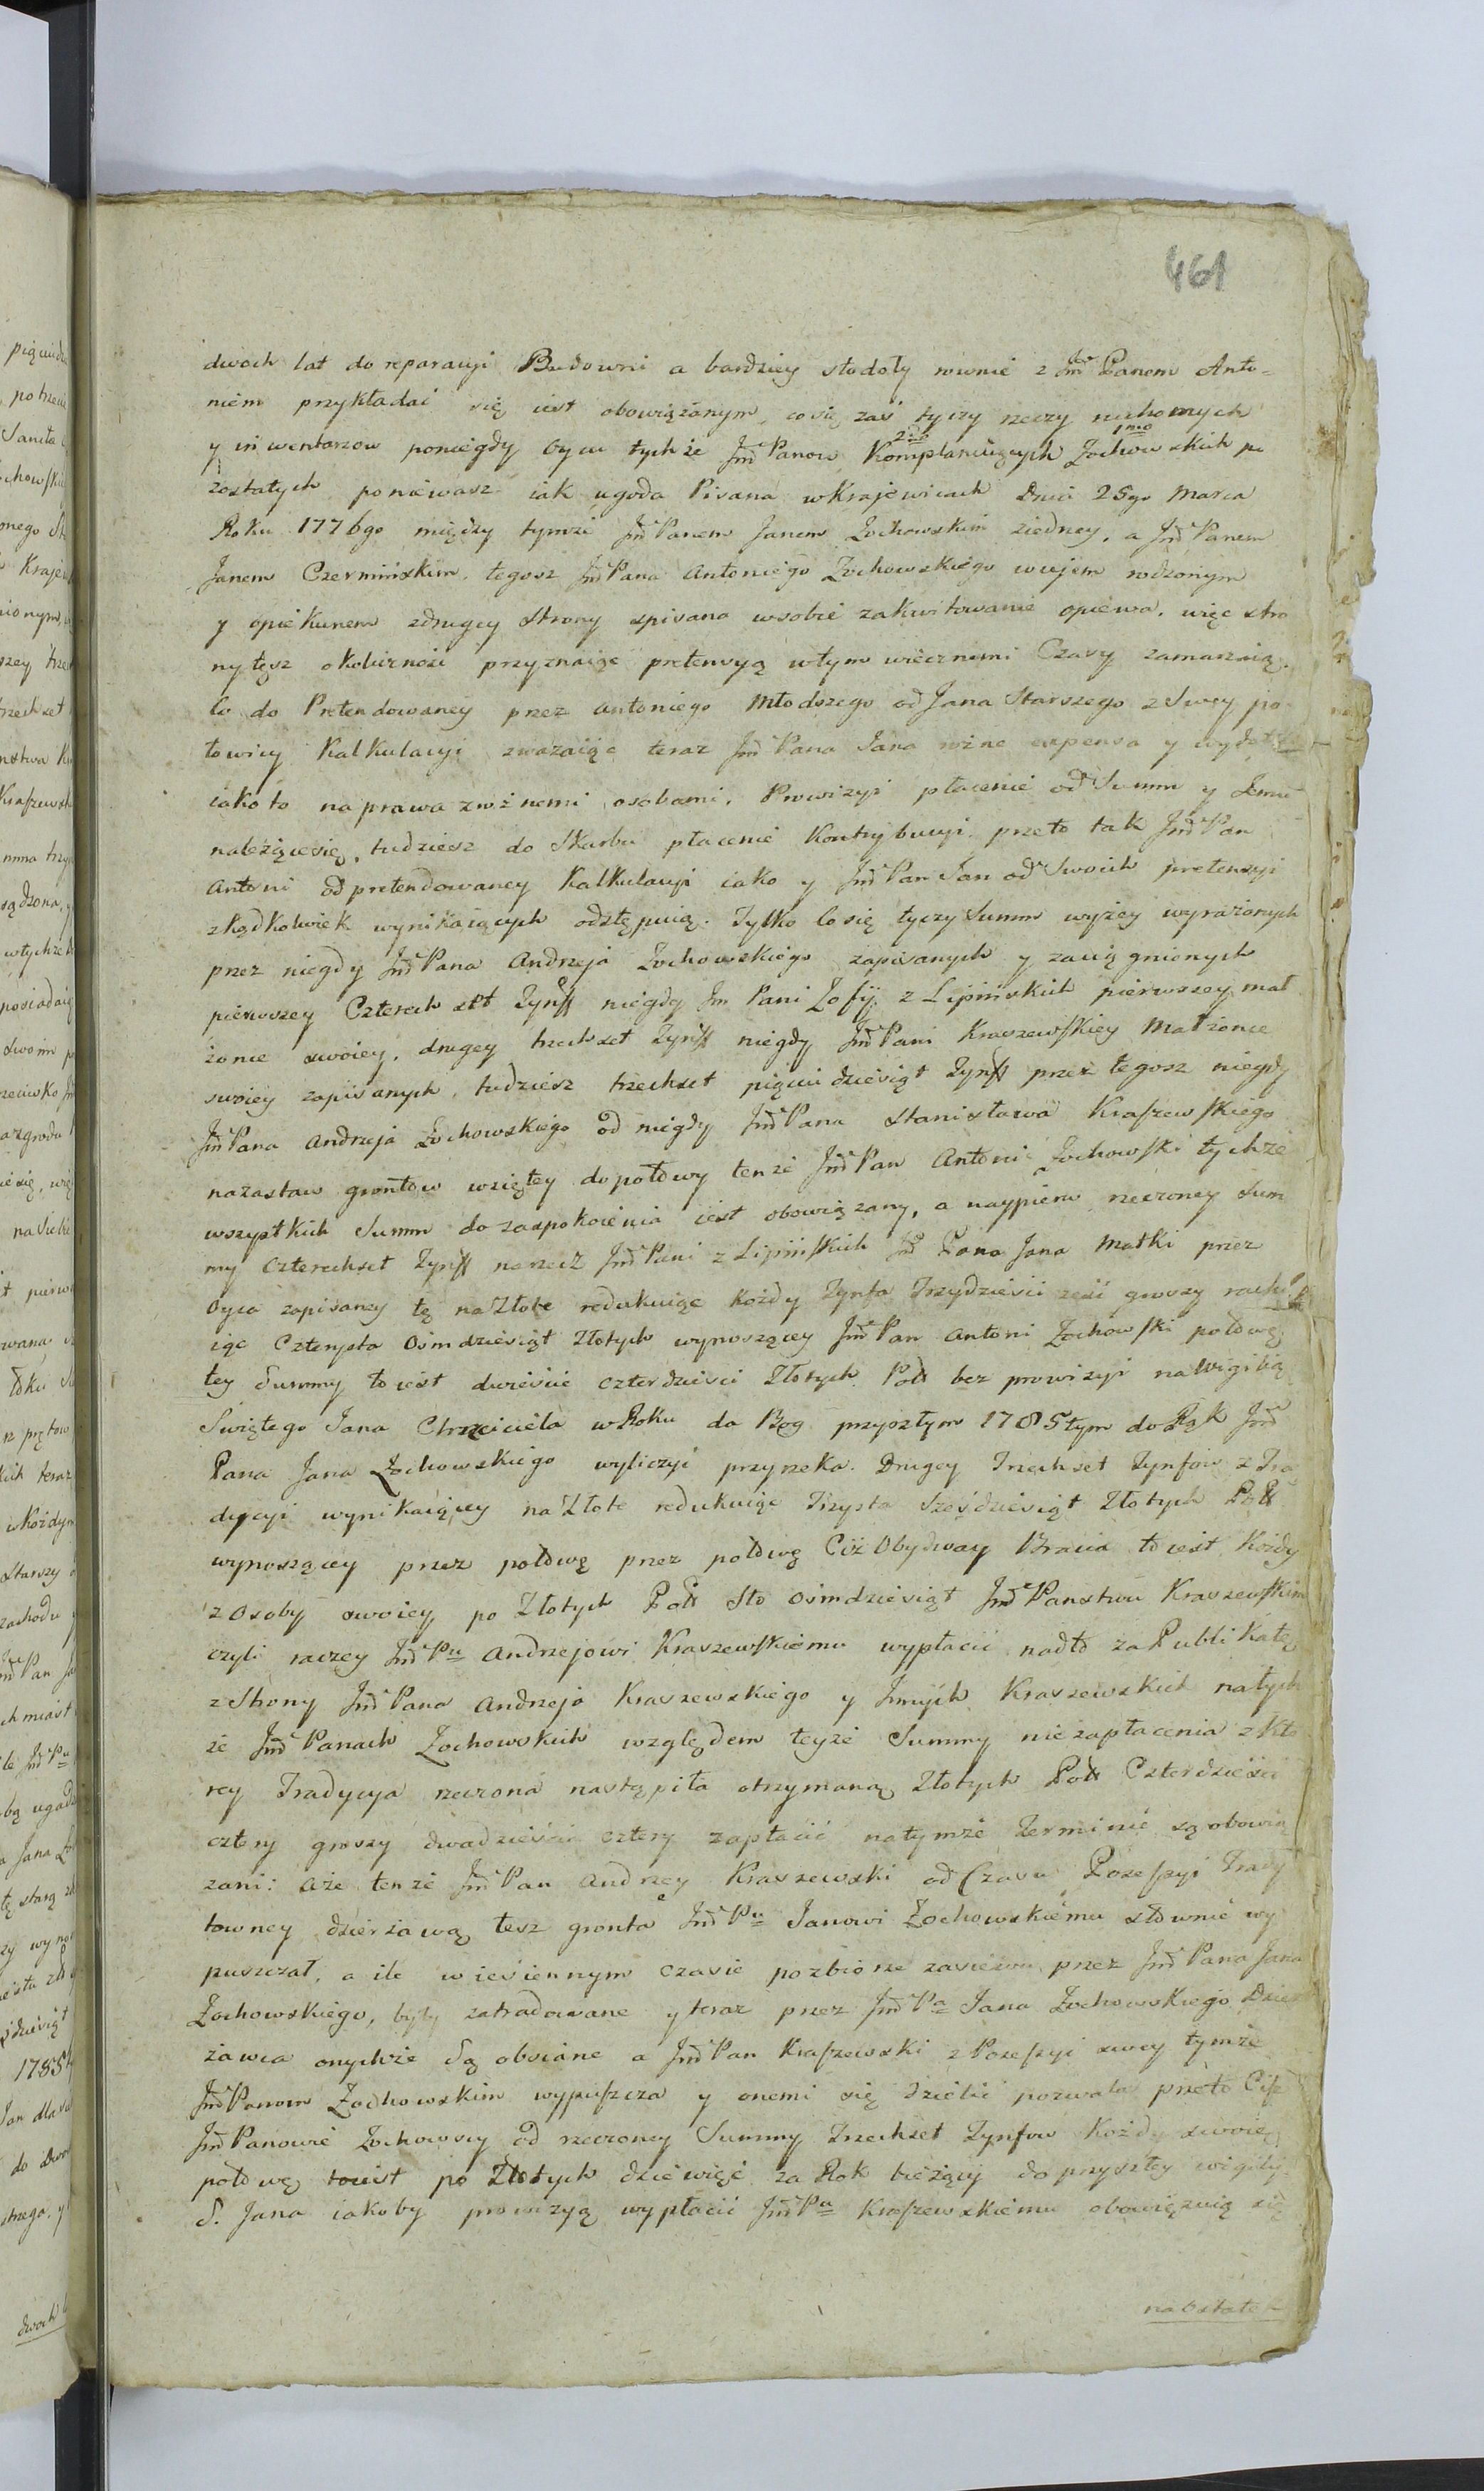 461
dwoch lat do reparacyi Budowni a bardziey stodoły rownie z Jmć Panem Anto-
niem przykładać się iest obowiązanym, co się zaś tyczy rzeczy ruchomych
y inwentarzow poniegdy Oycu tychże Jmć Panow Komplanuiących 2do Zochowskich 1mo po
zostałych poniewasz iak ugoda Pisana w Krajewicach Dnia 25go Marca
Roku 1776go między tymże Jmć Panem Janem Zochowskim ziedney, a Jmć Panem
Janem Czermińskim, tegosz Jmć Pana Antoniego Zochowskiego wujem rodzonym
y opiekunem zdrugey strony spisana w sobie zakwitowanie opiewa, więc stro
ny tęsz okoliczność przyznaiąc pretensyą w tym wiecznemi Czasy zamarzaią.
Co do Pretendowaney przez Antoniego Młodszego od Jana Starszego z Swey po
łowicy Kalkulacyi zwazaiąc teraz Jmć Pana Jana rożne expensa y wydatki
iako to na prawa zrożnemi osobami, Prowizyi płacenie od Summ y Jemu
należącesię, tudziesz do Skarbu płacenie Kontrybucyi, przeto tak Jmć Pan
Antoni od pretendowaney Kalkulacyi iako y Jmć Pan Jan od Swoich pretensyi
zkądkolwiek wynikaiących odstępuią. Tylko Co się tyczy Summ wyżey wyrażonych
przez niegdy Jmć Pana Andrzeja Zochowskiego zapisanych y zaciągnionych
pierwszey Czterech set Tynff niegdy Jm Pani Zofij z Lipińskich pierwszey mał
żonce swoiey, drugey trzechset Tynff niegdy Jmć Pani Kraszewskiey Małżonce
swoiey zapisanych, tudziesz trzechset pięciudziesiąt Tynff przez tegosz niegdy
Jmć Pana Andrzeja Zochowskiego od niegdy Jmć Pana Stanisława Kraszewskiego
na zastaw grontow wziętey do połowy tenże Jmć Pan Antoni Zochowski tychże
wszystkich Summ do zaspokoienia iest obowiązany, a naypierw rzeczoney Sum
my Czterechset Tynff na rzecz Jmć Pani z Lipińskich Jmć Pana Jana Matki przez
Oyca zapisaney tę na Złote redukuiąc każdy Tynfa Trzydzieści sześć groszy rachu
iąc Czterysta Ośmdziesiąt Złotych wynoszącey Jmć Pan Antoni Zochowski połowę
tey Summy to iest dwieście czterdzieści Złotych Poll bez prowizyi na Wigilią
Swiętego Jana Chrzciciela w Roku da Bog przyszłym 1785tym do Rąk Jmć
Pana Jana Zochowskiego wyliczyć przyrzeka. Drugey Trzechset Tynfow z Tra
dycyi wynikaiącey na Złote redukuiąc Trzysta Sześdziesiąt Złotych Poll
wynoszącey przez połowę przez połowę Ciż Obydway Bracia to iest Każdy
z Osoby swoiey po Złotych Poll Sto ośmdziesiąt Jmć Panstwu Kraszewskim
czyli raczey Jmć Pu Andrzejowi Kraszewskiemu wypłacić nadto za Publikatę
z Strony Jmć Pana Andrzeja Kraszewskiego y Innych Kraszewskich na tych
że Jmć Panach Zochowskich względem teyże Summy niezapłacenia z Kto
rey Tradycya rzeczona nastąpiła otrzymaną Złotych Poll Czterdzieści
cztery groszy dwadzieścia cztery zapłacić na tymże Terminie są obowią
zani: Aże tenże Jmć Pan Andrzey Kraszewski od Czasu Possessyi Trady
towney dzierżawą tesz gronta Jmć Pu Janowi Zochowskiemu słownie wy
puszczał, a ile w iesiennym czasie po zbiorze zasiewu przez Jmć Pana Jana
Zochowskiego, były zatradowane y teraz przez Jmć Pa Jana Zochowskiego Dzier
żawca onychże Są obsiane a Jmć Pan Kraszewski z Possessyi swey tymże
Jmć Panom Zochowskim wypuszcza y onemi się dzielić pozwala przeto Ciż
Jmć Panowie Zochowscy od rzeczoney Summy Trzechset Tynfow Każdy swoię
połowę toiest po Złotych dziewięć za Rok bieżący do przyszłey wigilij
S. Jana iakoby prowizyą wypłacić Jmć Pu Kraszewskiemu obowięzuią się
na ostatek